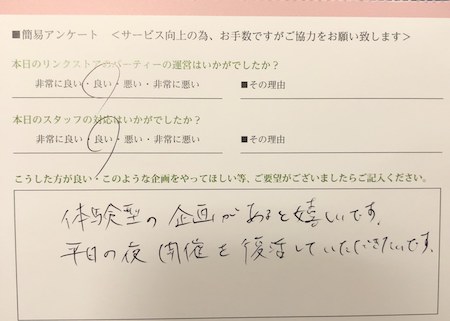 ■簡易アンケート ＜サービス向上の為、お手数ですがご協力をお願い致します＞
本日のリンクストアのパーティーの運営はいかがでしたか？
非常に良い・良い・悪い・非常に悪い ■その理由
本日のスタッフの対応はいかがでしたか？
非常に良い・良い・悪い・非常に悪い ■その理由
こうした方が良い・このような企画をやってほしい等、ご要望がございましたらご記入ください。
体験型の企画があると嬉しいです。
平日の夜開催を復活していただきたいです。